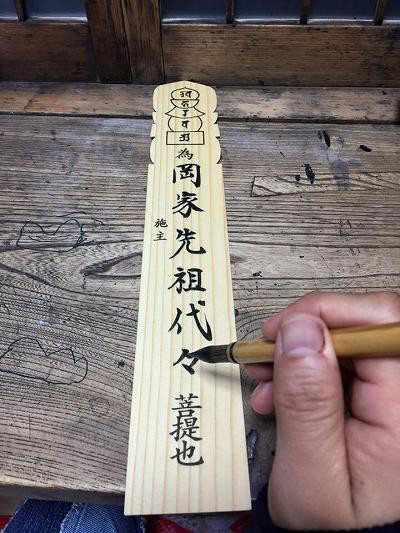 為岡家先祖代々菩提也
施主